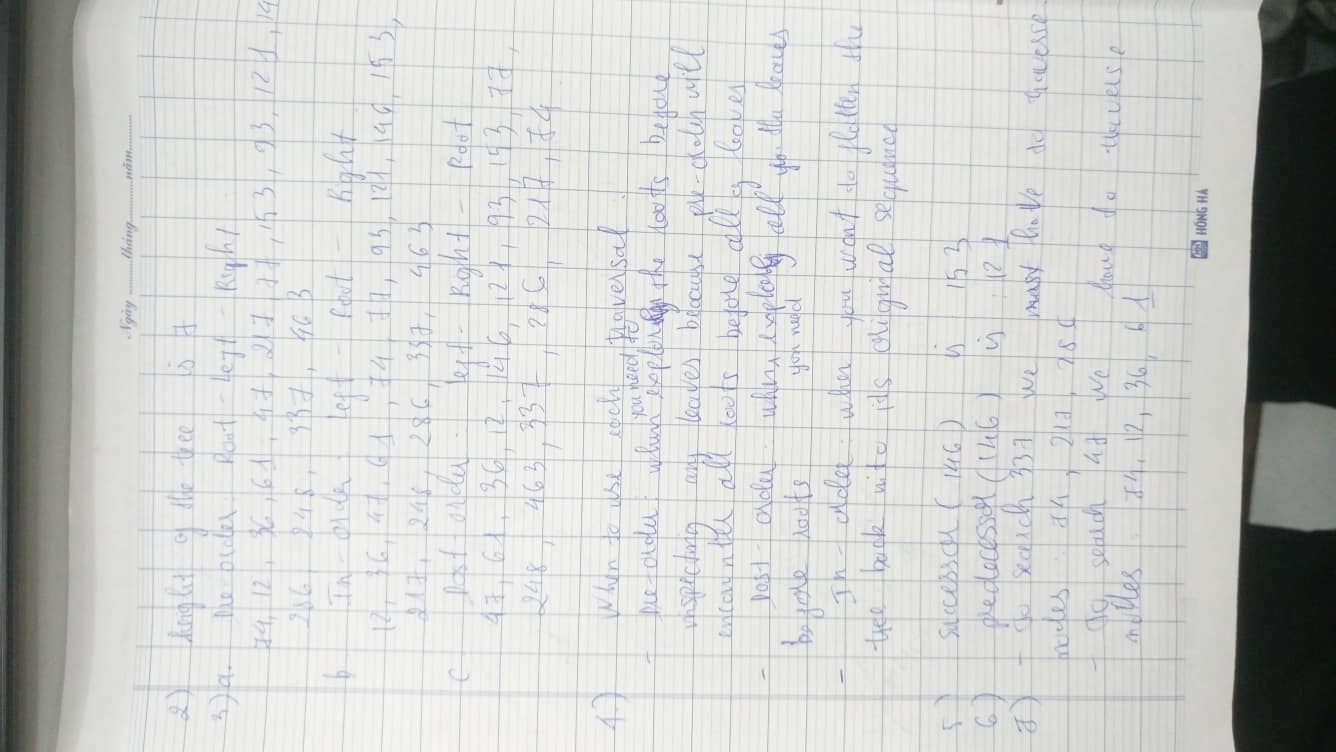 Ngày ........ tháng ........ năm ........
2) height of the tree is 7
3) a. Pre-order: Root - Left - Right
74, 12, 36, 61, 47, 217, 77, 153, 93, 121, 14
286, 248, 337, 463
b In - order : left - Root - Right
12, 36, 47, 61, 74, 77, 93, 121, 146, 153,
217, 248, 286, 337, 463
c Post-order : left - Right - Root
47, 61, 36, 12, 146, 121, 93, 153, 77,
248, 463, 337, 286, 217, 74
4.) When to use each traversal :
you need to
- Pre-order: when exploring the roots before
inspecting any leaves because pre-order will
encounter all roots before all of leaves
- Post - order : when explore all the leaves
before roots you need
- In - order : when you want to flatten the
tree back into its original sequence
5) successor (146) is 153
6) predecessor (146) is : 121
7) - To search 337 we must have to traverse
nodes : 74, 217, 286
- To search 47 we have to traverse
nodes : 74, 12, 36, 61
HH HỒNG HÀ